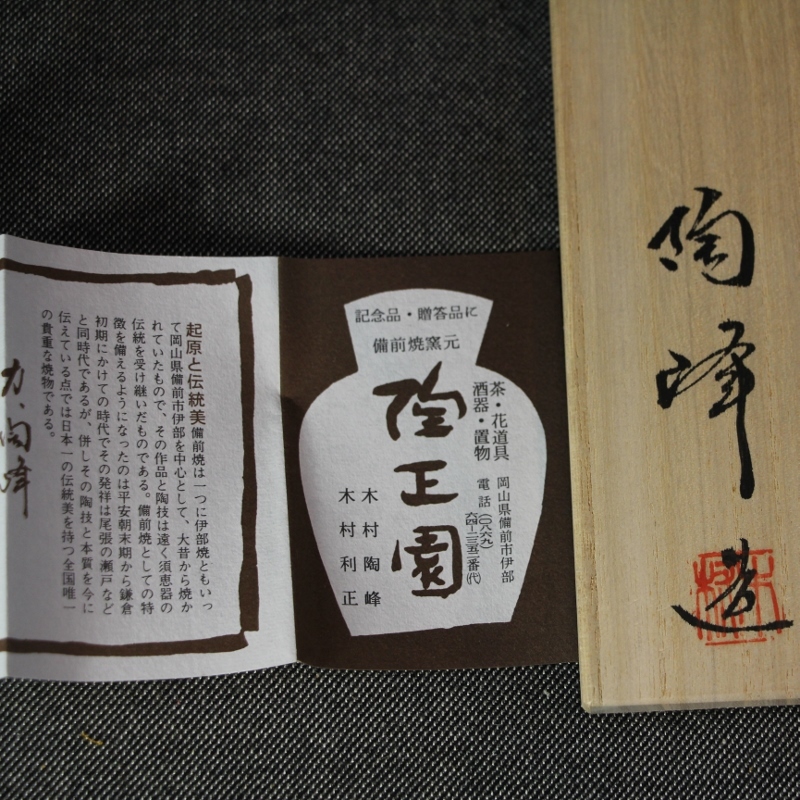 陶峰造
記念品・贈答品に
備前焼窯元
茶・花道具
酒器・置物
陶正園
岡山県備前市伊部
電話(〇八六九)
六四-二三五二番(代)
木村陶峰
木村利正
起原と伝統美 備前焼は一つに伊部焼ともいっ
て岡山県備前市伊部を中心として、大昔から焼か
れていたもので、その作品と陶技は遠く須恵器の
伝統を受け継いだものである。備前焼としての特
徴を備えるようになったのは平安朝末期から鎌倉
初期にかけての時代でその発祥は尾張の瀬戸など
と同時代であるが、併しその陶技と本質を今に
伝えている点では日本一の伝統美を持つ全国唯一
の貴重な焼物である。
陶峰